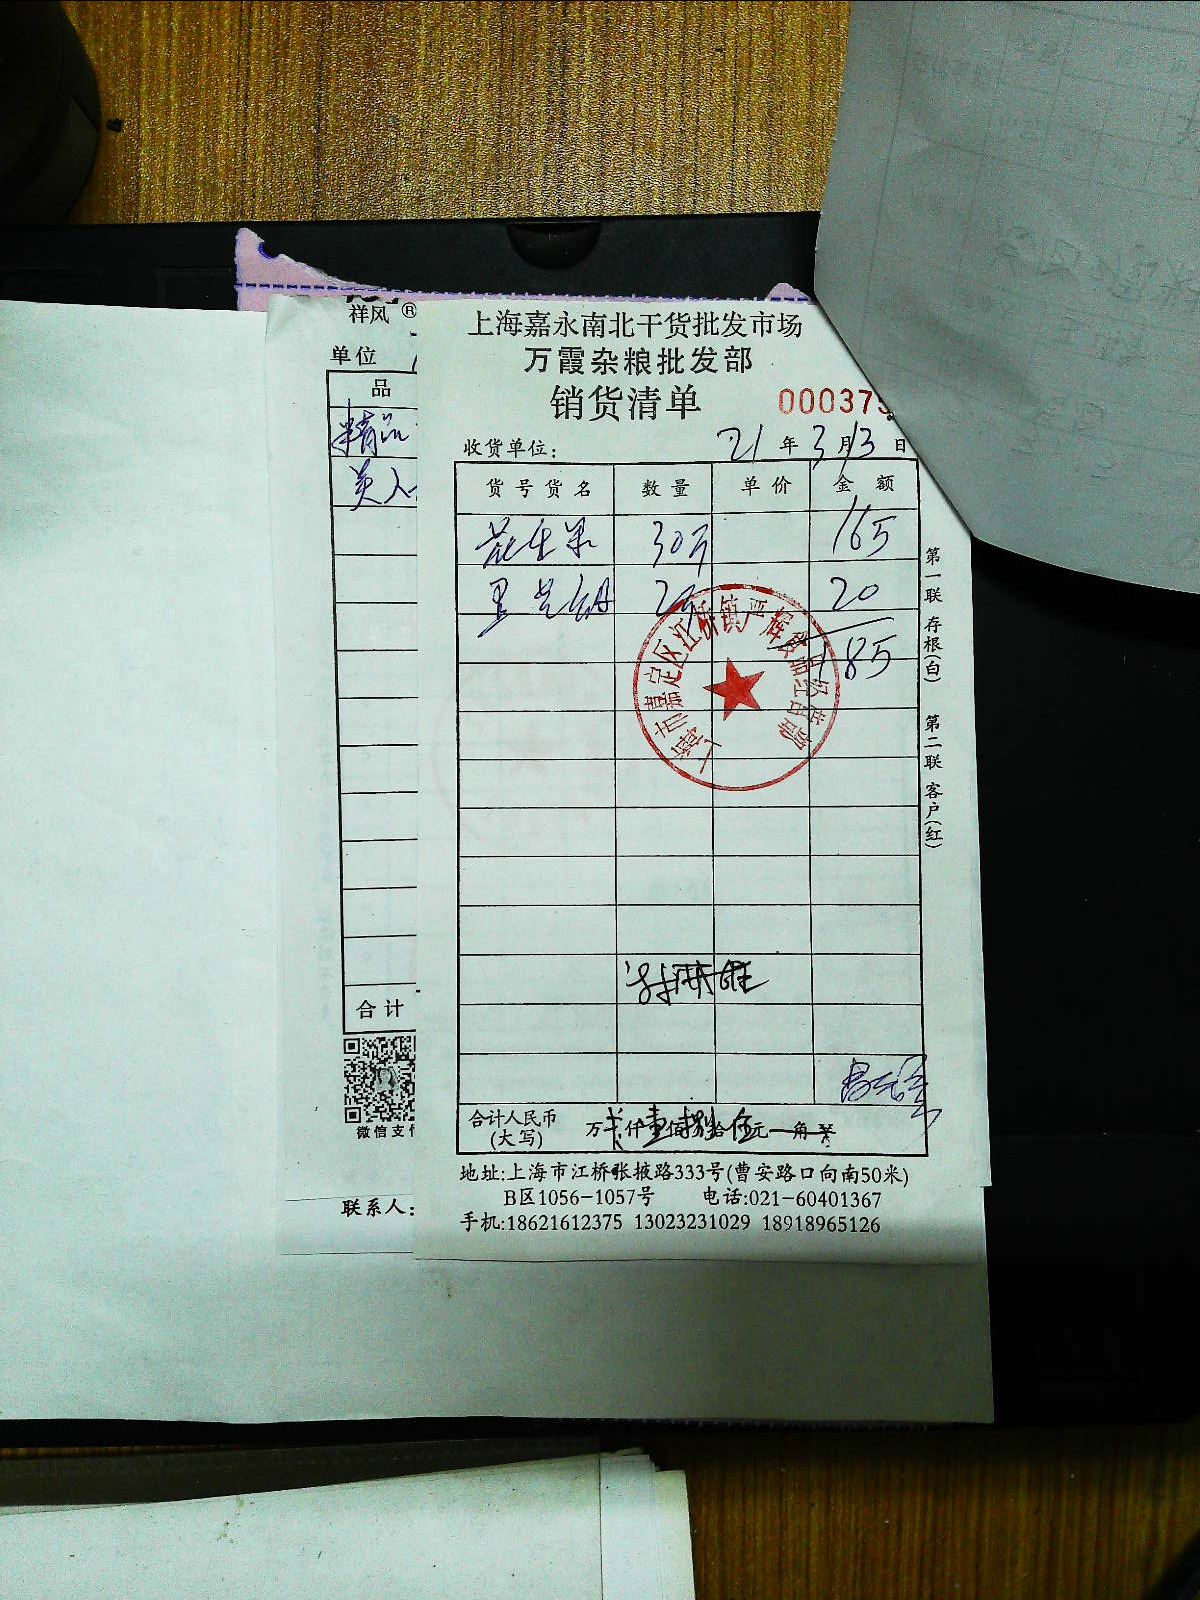 祥风®
单位
品
精品
美人
合计
微信支付
联系人:
上海嘉永南北干货批发市场
万霞杂粮批发部
销货清单
000375
收货单位: 21年3月13日
货号货名 数量 单价 金额
花生米 30斤 165
20
185
上海市嘉定区江桥镇严辉食品经营部
合计人民币(大写) 万 仟壹佰捌拾伍元 角
地址:上海市江桥张掖路333号(曹安路口向南50米)
B区1056-1057号 电话:021-60401367
手机:18621612375 13023231029 18918965126
第一联 存根(白) 第二联 客户(红)